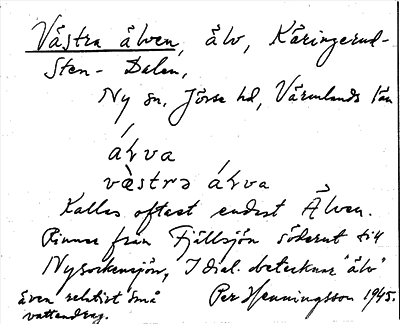 Västra älven, älv, Käringerud-
Sten - Dalen,
Ny sn, Jösse hd, Värmlands län
álva
vàstrə álva
Kallas oftast endast Älven.
Rinner från Fjällsjön söderut till
Nysockensjön, I dial. betecknar "älv"
även relativt små Per Henningsson 1945.
vattendrag.